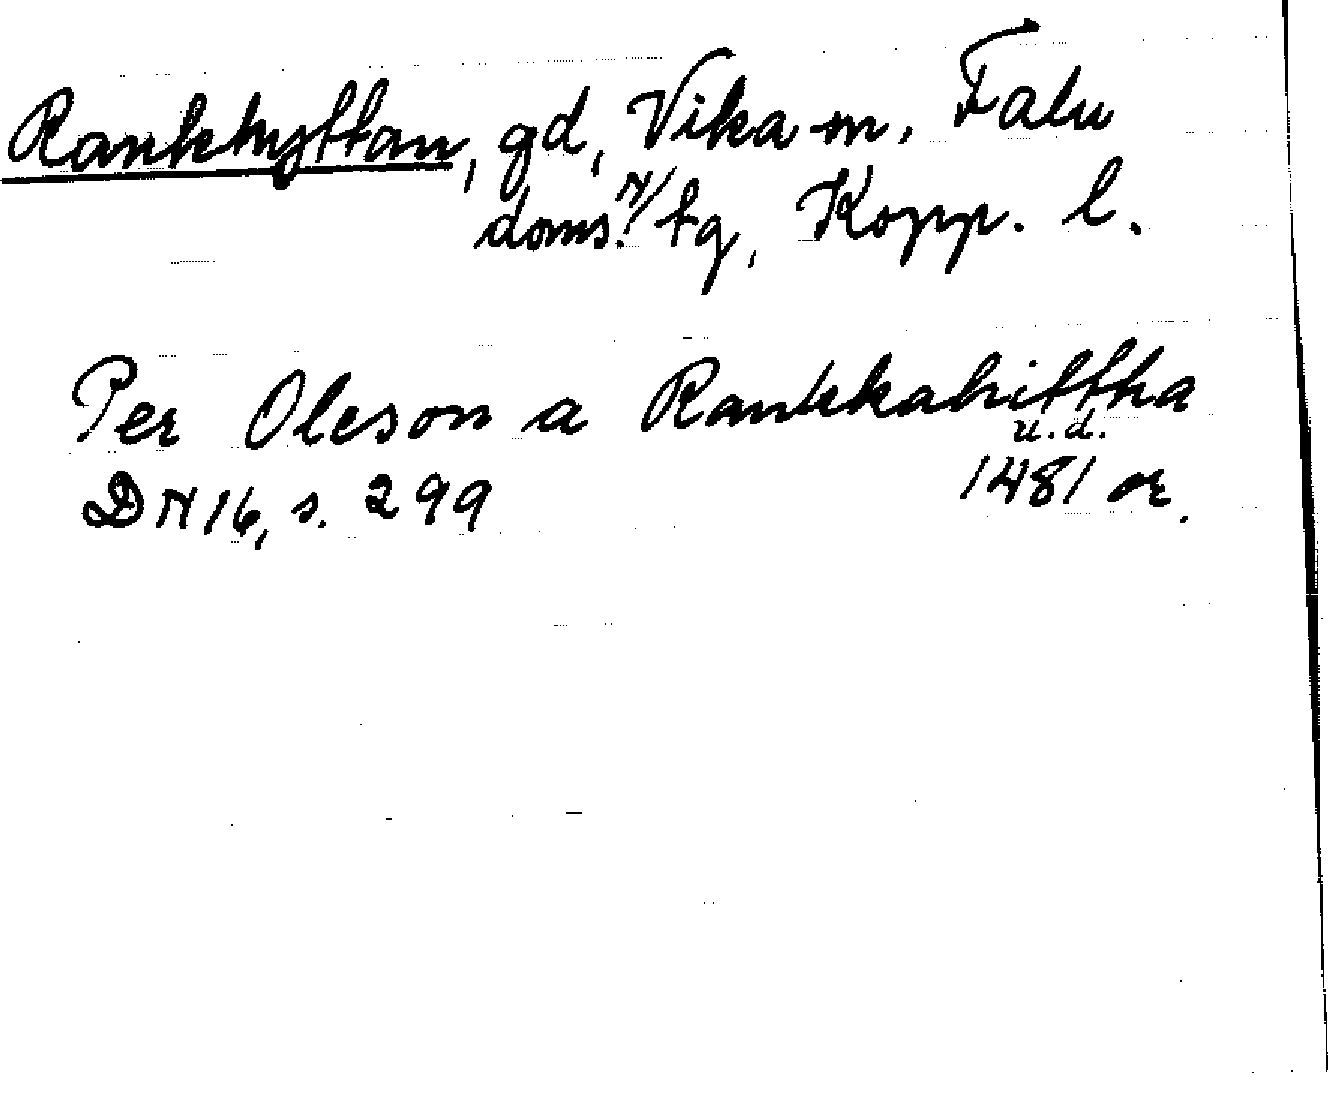 Rankhyttan, gd, Vika sn, Falu
doms. N/ tg, Kopp. l.
Per Oleson a Rankkahittha
u.d.
DN 16, s. 299 1481 or.